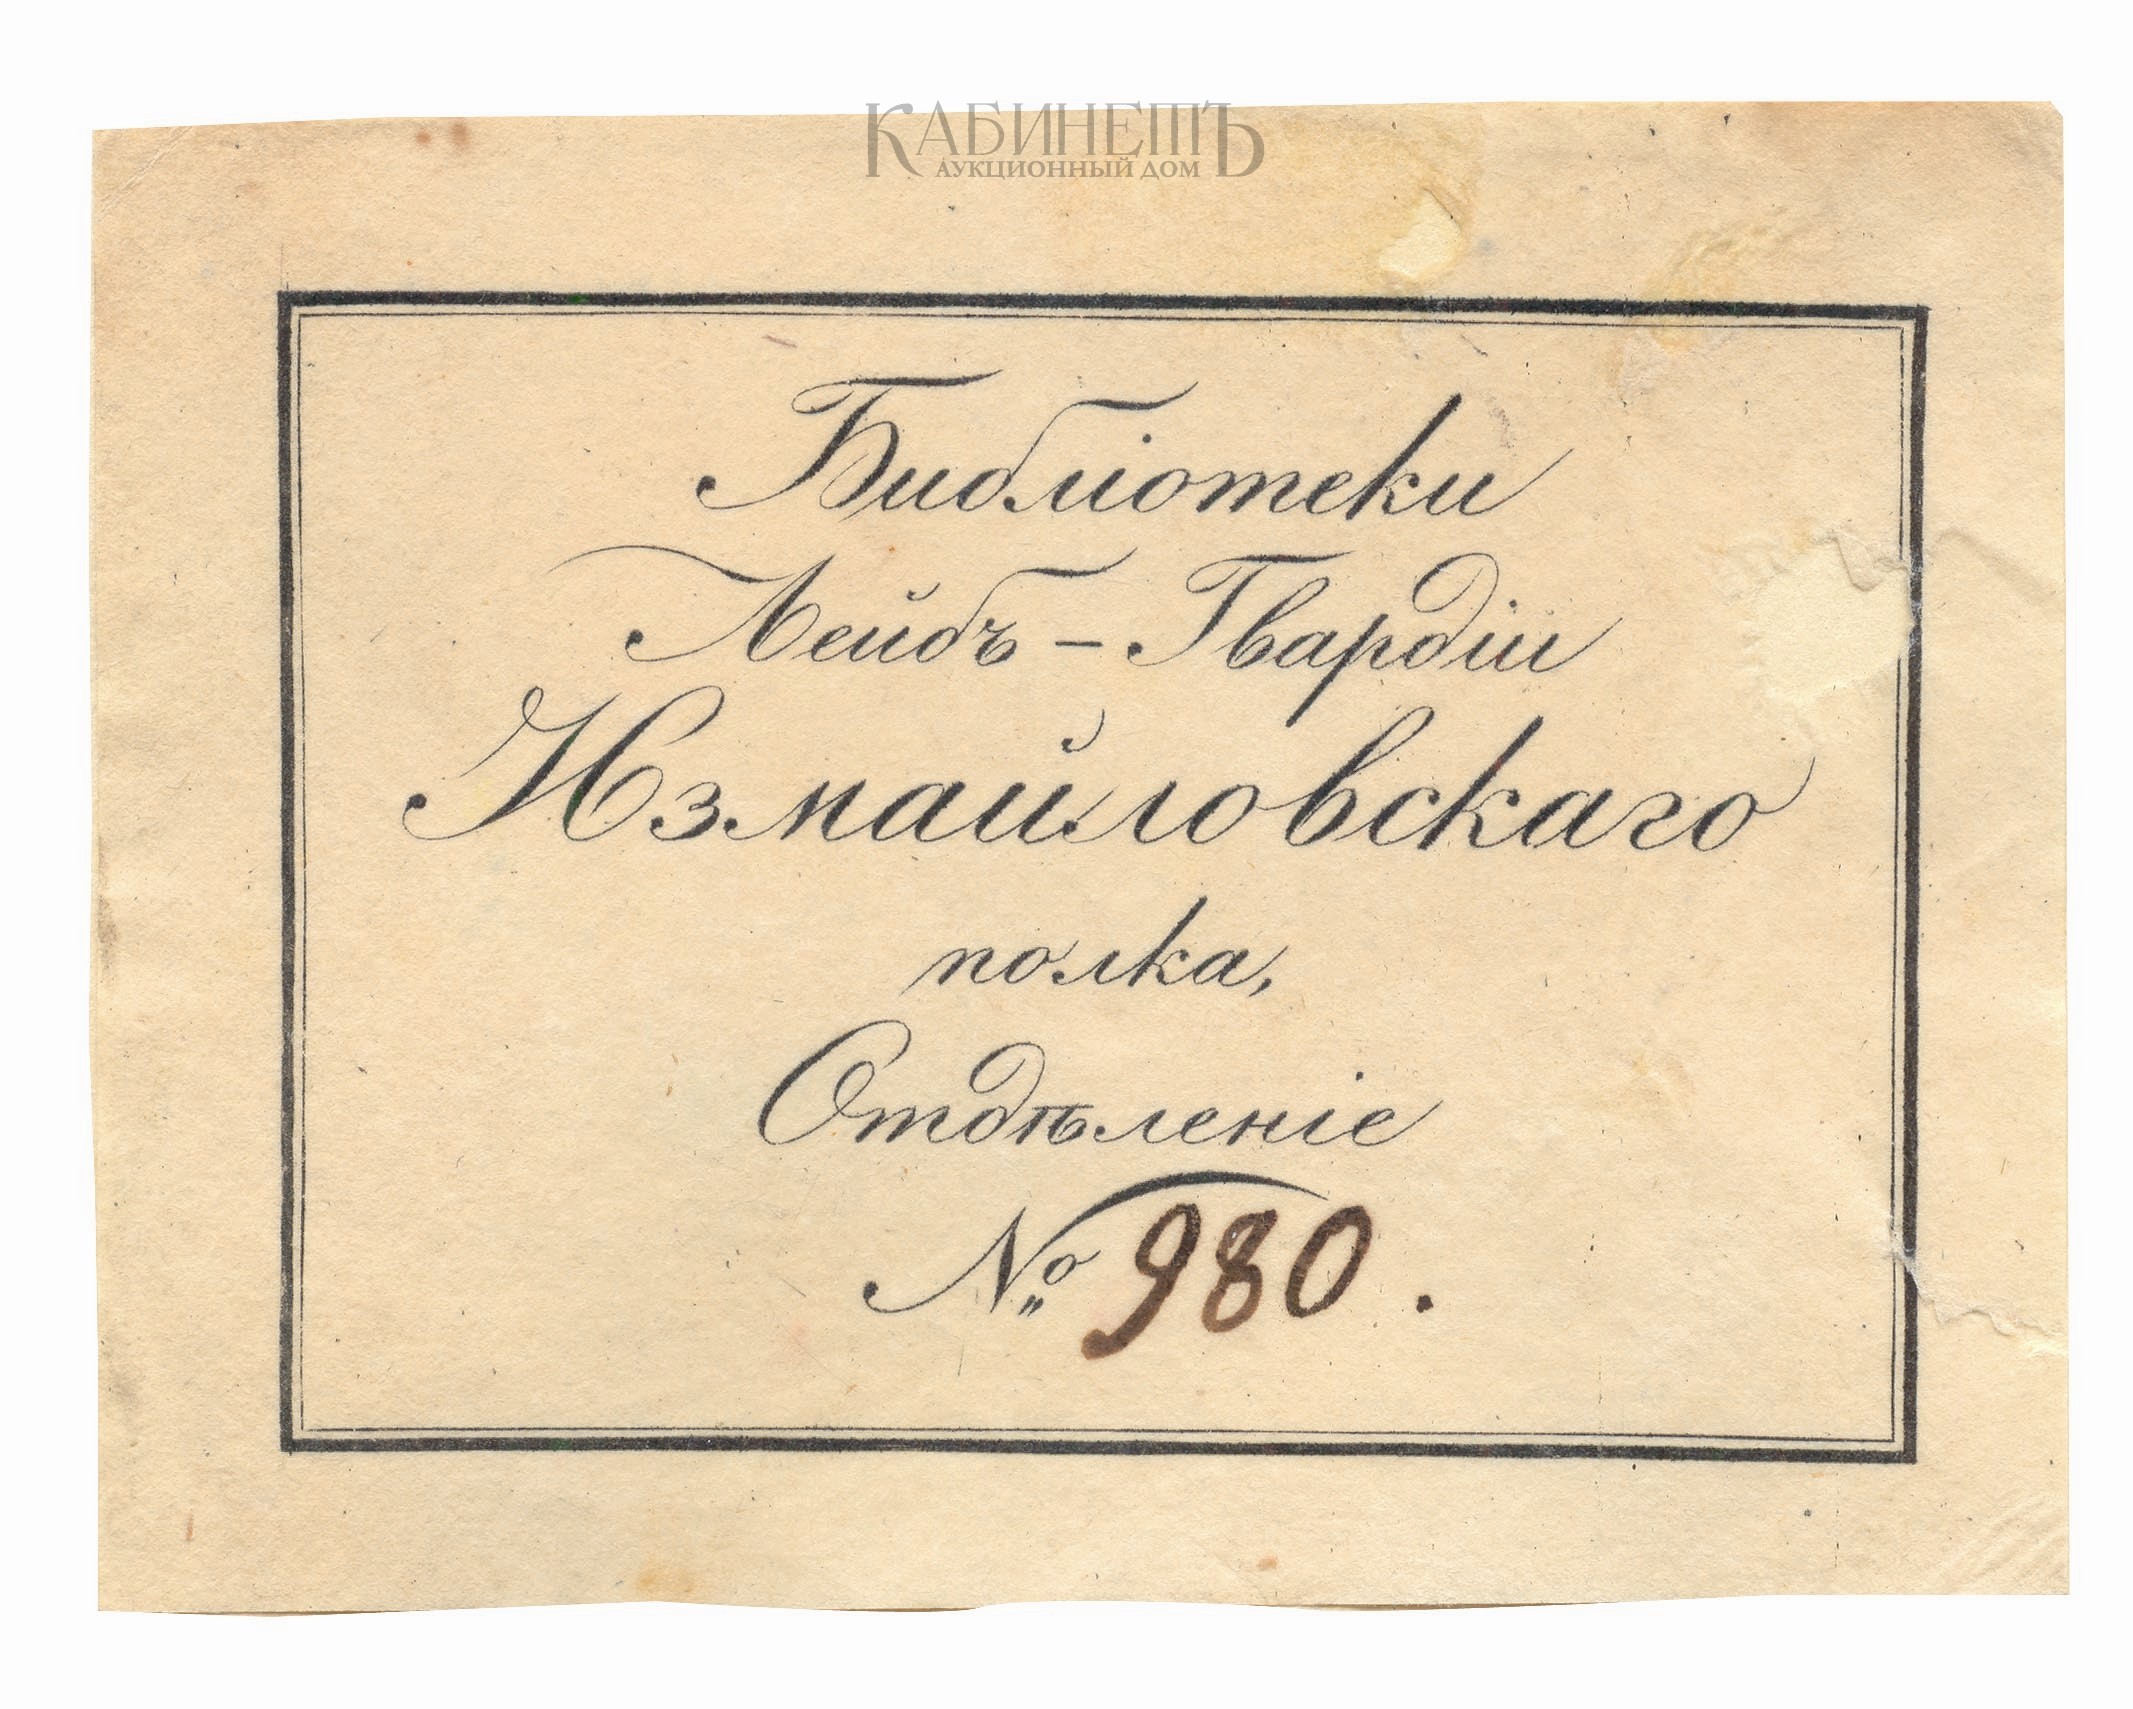 КАБИНЕТЪ
АУКЦИОННЫЙ ДОМ
Библіотеки
Лейбъ-Гвардіи
Измайловскаго
полка,
Отдѣленіе
№ 980.